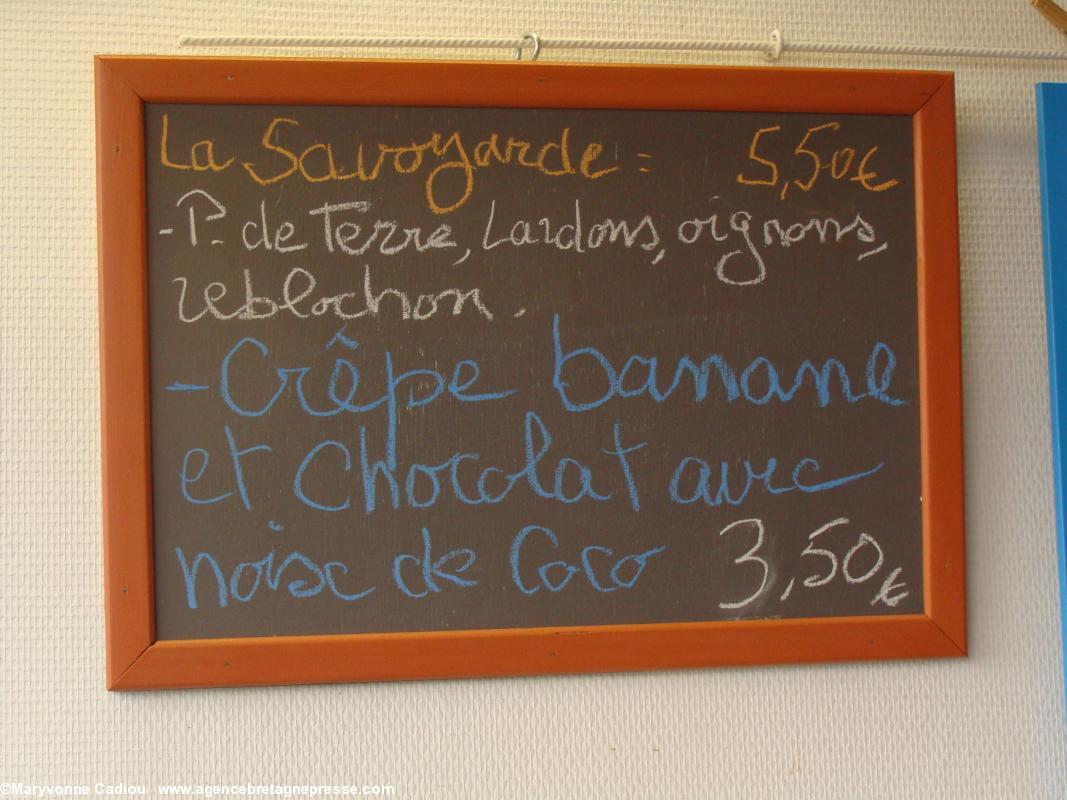 La Savoyarde = 5,50€
-P. de Terre, Lardons, oignons,
reblochon.
-Crêpe banane
et Chocolat avec
noix de Coco 3,50€
©Maryvonne Cadiou www.agencebretagnepresse.com